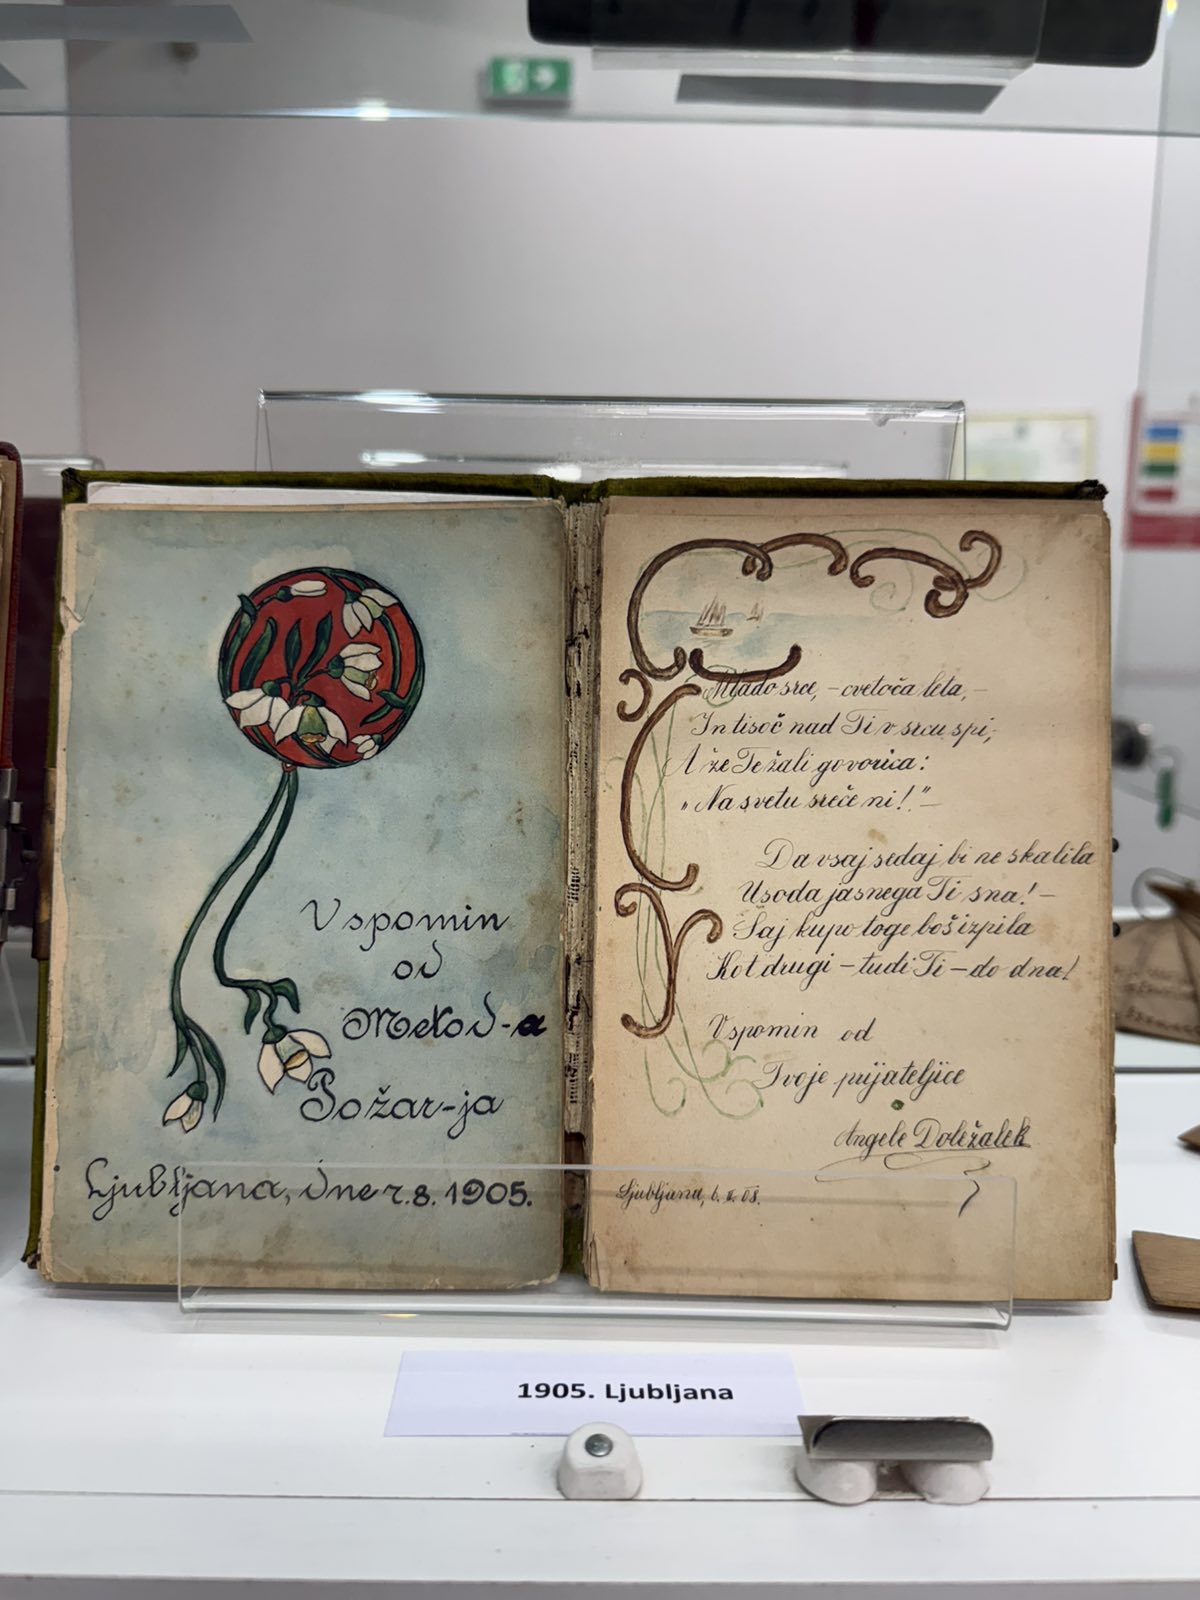 Vspomin
od
Metod-a
Požar-ja
Ljubljana, dne 7.8.1905.
Mlado srce, – cvetoča leta, –
In tisoč nad Ti v srcu spi;
A že Te žali govorica:
„Na svetu sreče ni!" –
Da vsaj sedaj bi ne skalila
Usoda jasnega Ti sna! –
Saj kupo toge boš izpila
Kot drugi – tudi Ti – do dna!
Vspomin od
Tvoje prijateljice
Angele Doležalek
Ljubljana, 6. II. 08.
1905. Ljubljana